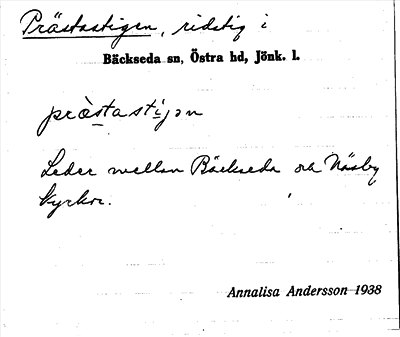 Prästastigen, ridstig i
Bäckseda sn, Östra hd, Jönk. l.
prästastijən
Leder mellan Bäckseda och Näsby
kyrkor.
Annalisa Andersson 1938